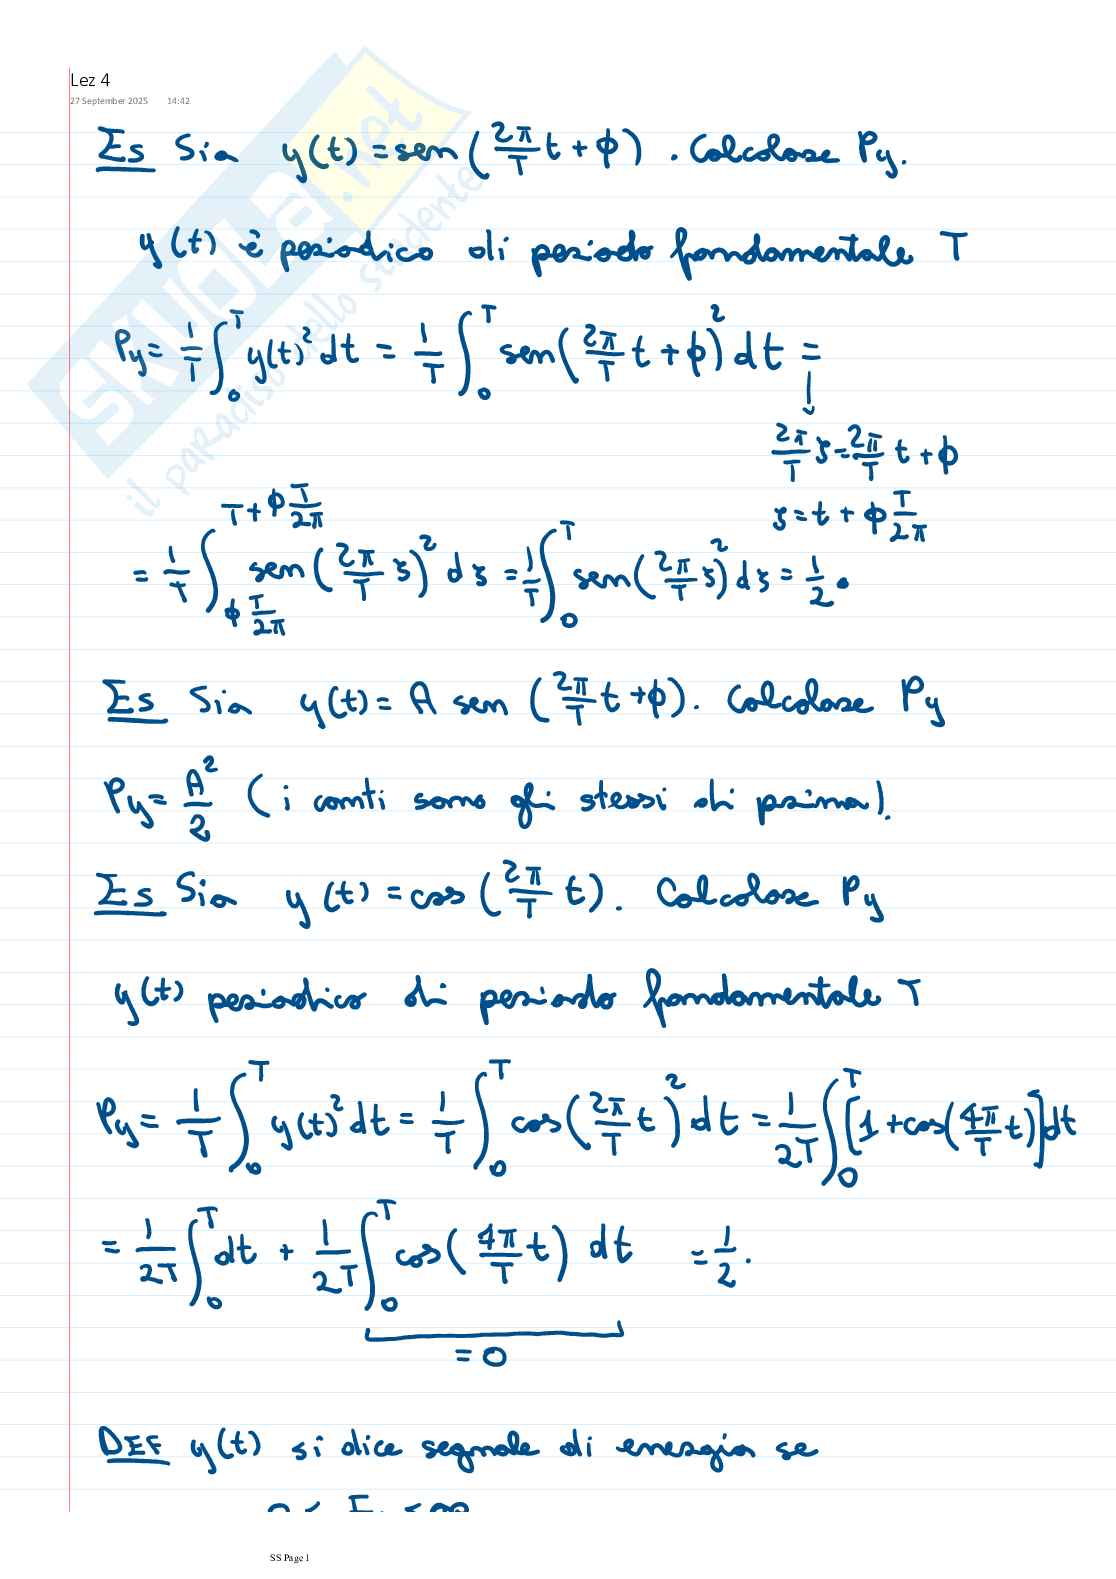 Lez 4
27 September 2025 14:42
Es Sia y(t) = sen(2π/T t + ϕ). Calcolare Py.
y(t) è periodico di periodo fondamentale T
Py = 1/T ∫₀ᵀ y(t)² dt = 1/T ∫₀ᵀ sen(2π/T t + ϕ)² dt =
↓
2π/T ξ = 2π/T t + ϕ
ξ = t + ϕ T/2π
= 1/T ∫_{ϕ T/2π}^{T + ϕ T/2π} sen(2π/T ξ)² dξ = 1/T ∫₀ᵀ sen(2π/T ξ)² dξ = 1/2.
Es Sia y(t) = A sen(2π/T t + ϕ). Calcolare Py
Py = A²/2 (i conti sono gli stessi di prima).
Es Sia y(t) = cos(2π/T t). Calcolare Py
y(t) periodico di periodo fondamentale T
Py = 1/T ∫₀ᵀ y(t)² dt = 1/T ∫₀ᵀ cos(2π/T t)² dt = 1/2T ∫₀ᵀ [1 + cos(4π/T t)] dt
= 1/2T ∫₀ᵀ dt + 1/2T ∫₀ᵀ cos(4π/T t) dt = 1/2.
= 0
DEF y(t) si dice segnale di energia se
SS Page 1
SKUOLA.net
il paradiso dello studente